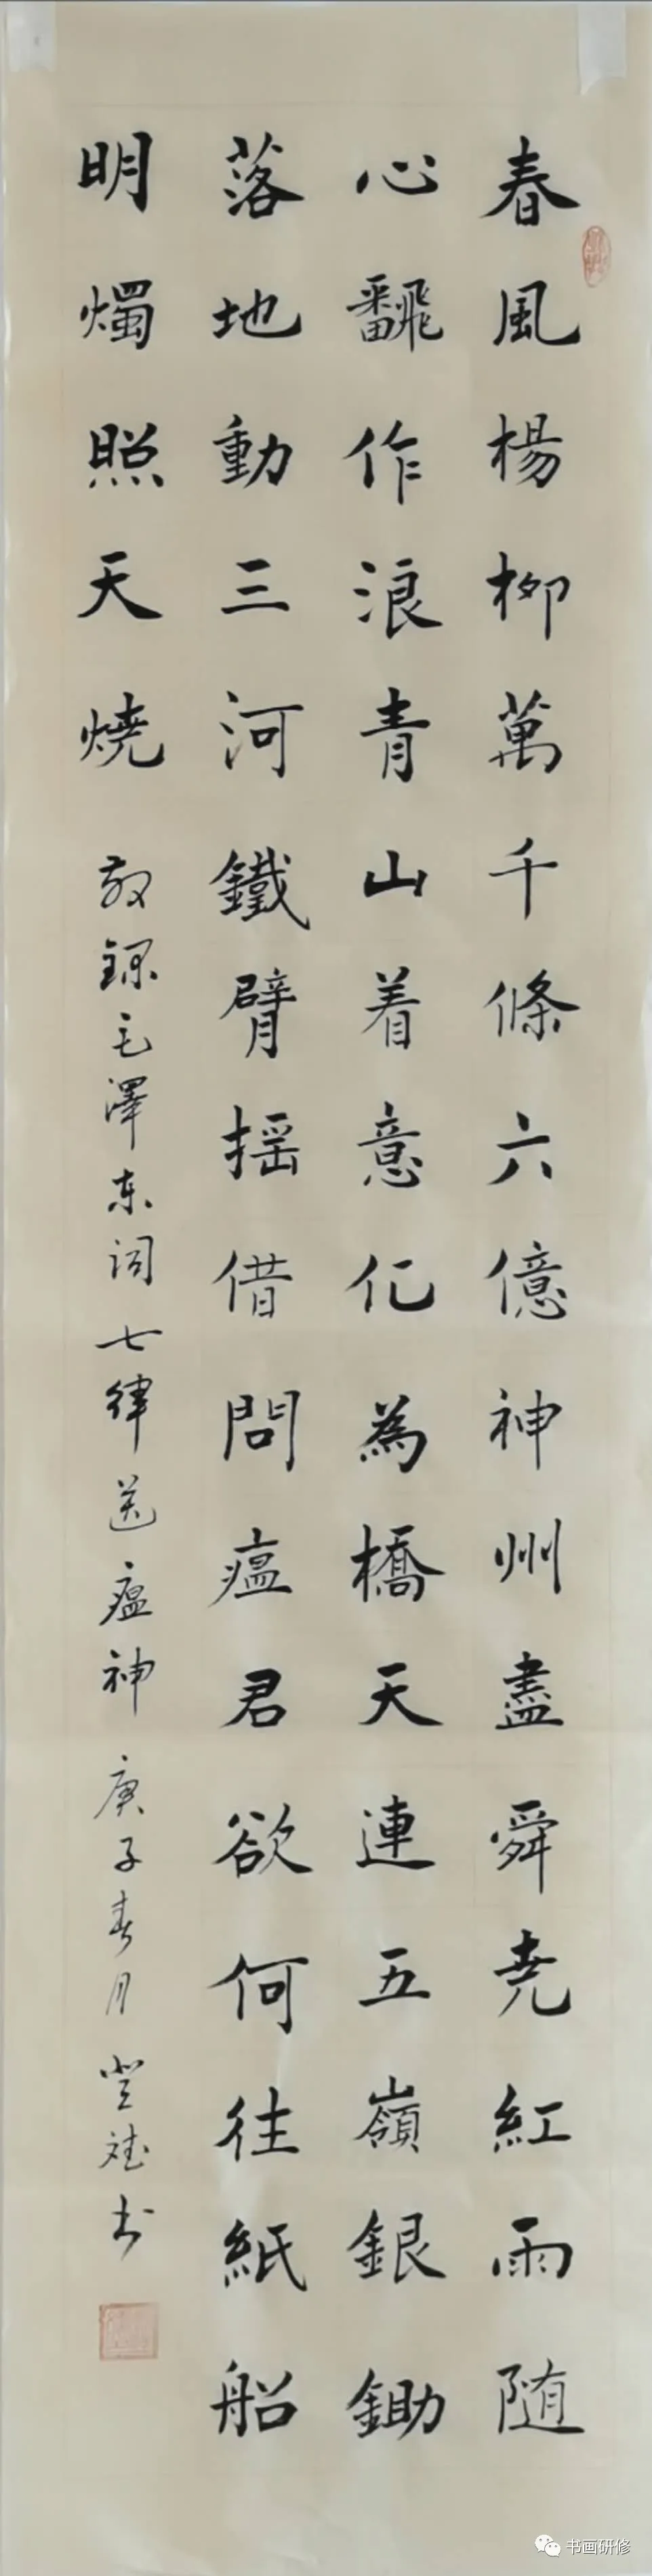 春風楊柳萬千條六億神州盡舜尭紅雨随
心飜作浪青山着意化為橋天連五嶺銀鋤
落地動三河鐵臂揺借問瘟君欲何往紙船
明燭照天燒
敬録毛澤东词七律送瘟神庚子春月登斌书
书画研修